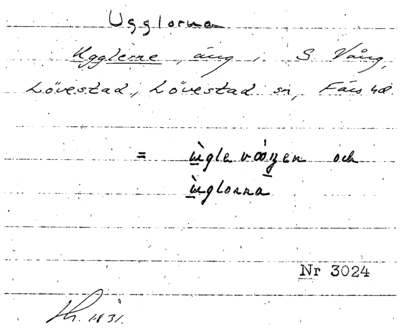 Ugglorna
Ugglerne, äng i S Vång,
Lövestad, Lövestad sn, Färs hd.
= ùgle våŋen och
ùglorna
Nr 3024
1831.